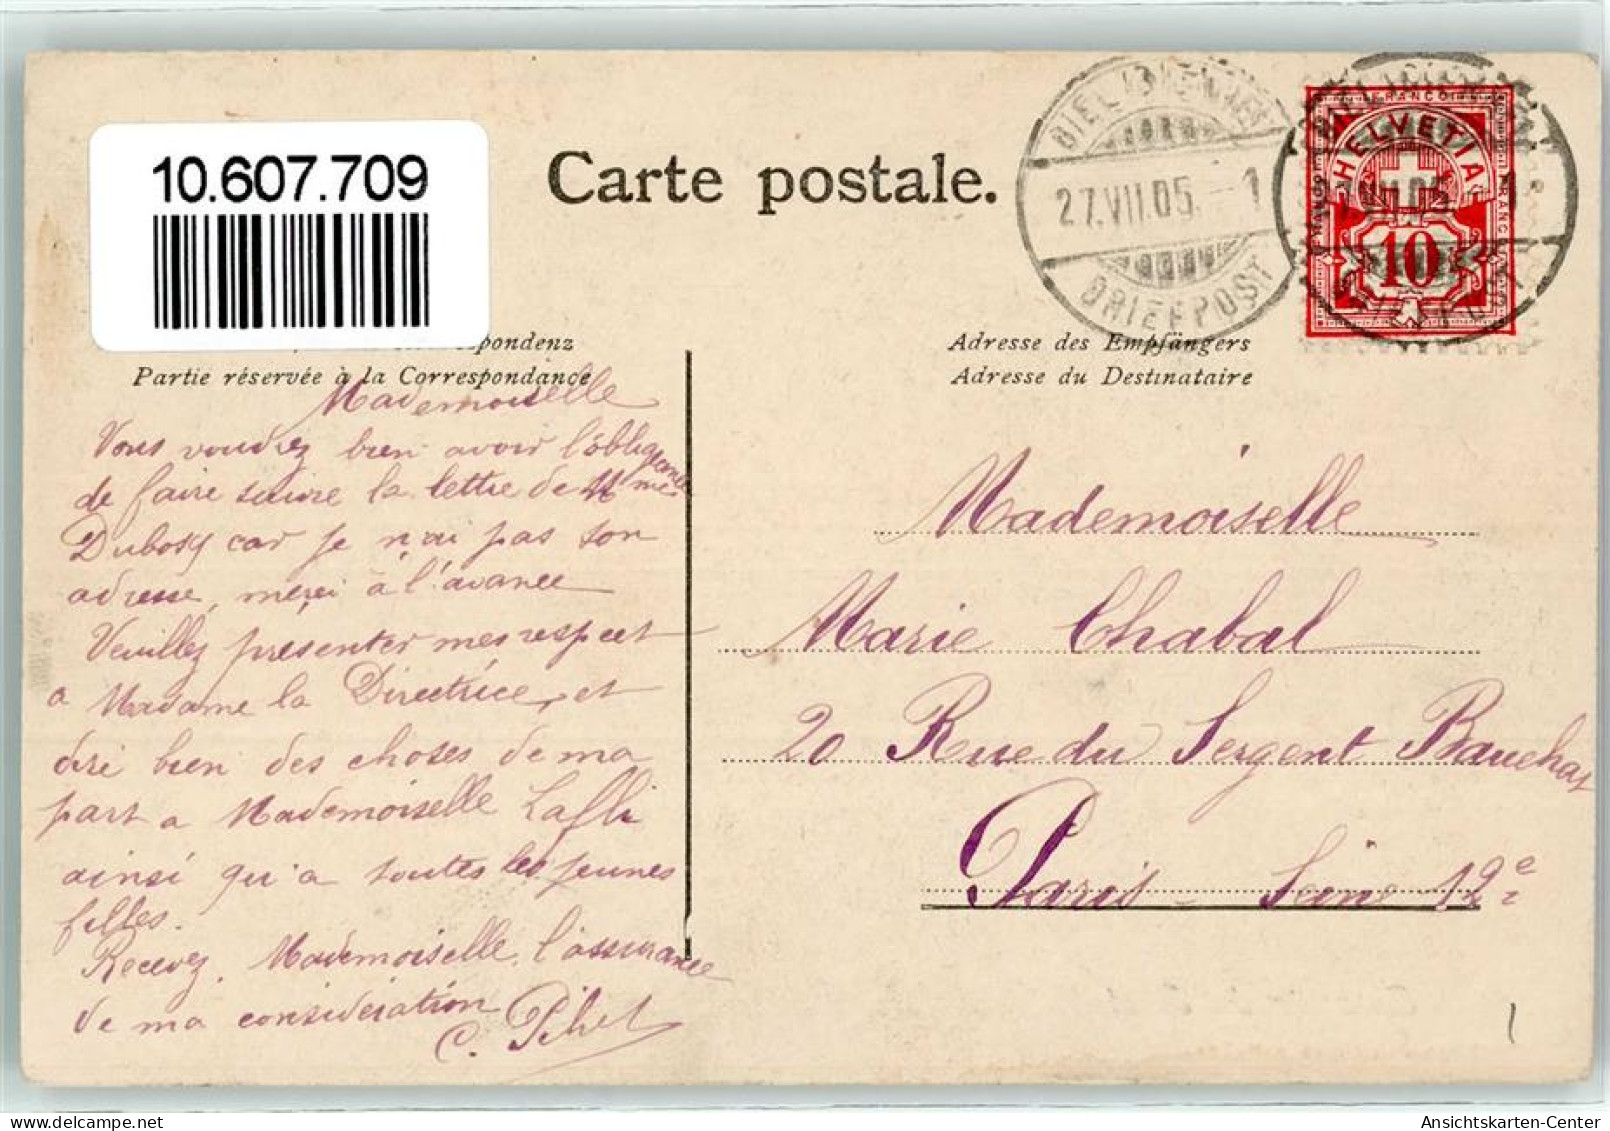 10.607.709
Carte postale.
BIEL (BIENNE)
27.VII.05. - 1
BRIEFPOST
FRANCO
HELVETIA
10
pondenz
Partie réservée à la Correspondance
Adresse des Empfängers
Adresse du Destinataire
Mademoiselle
Vous voudrez bien avoir l'obligeance
de faire suivre la lettre de Mme
Dubosq car je n'ai pas son
adresse, merci à l'avance
Veuillez presenter mes respect
a Madame la Directrice, et
dire bien des choses de ma
part a Mademoiselle Lafli
ainsi qu'a toutes les jeunes
filles.
Recevez, Mademoiselle, l'assurance
de ma considération
C. Pihet
Mademoiselle
Marie Chabal
20 Rue du Sergent Bauchat
Paris - Seine 12e
Ansichtskarten-Center